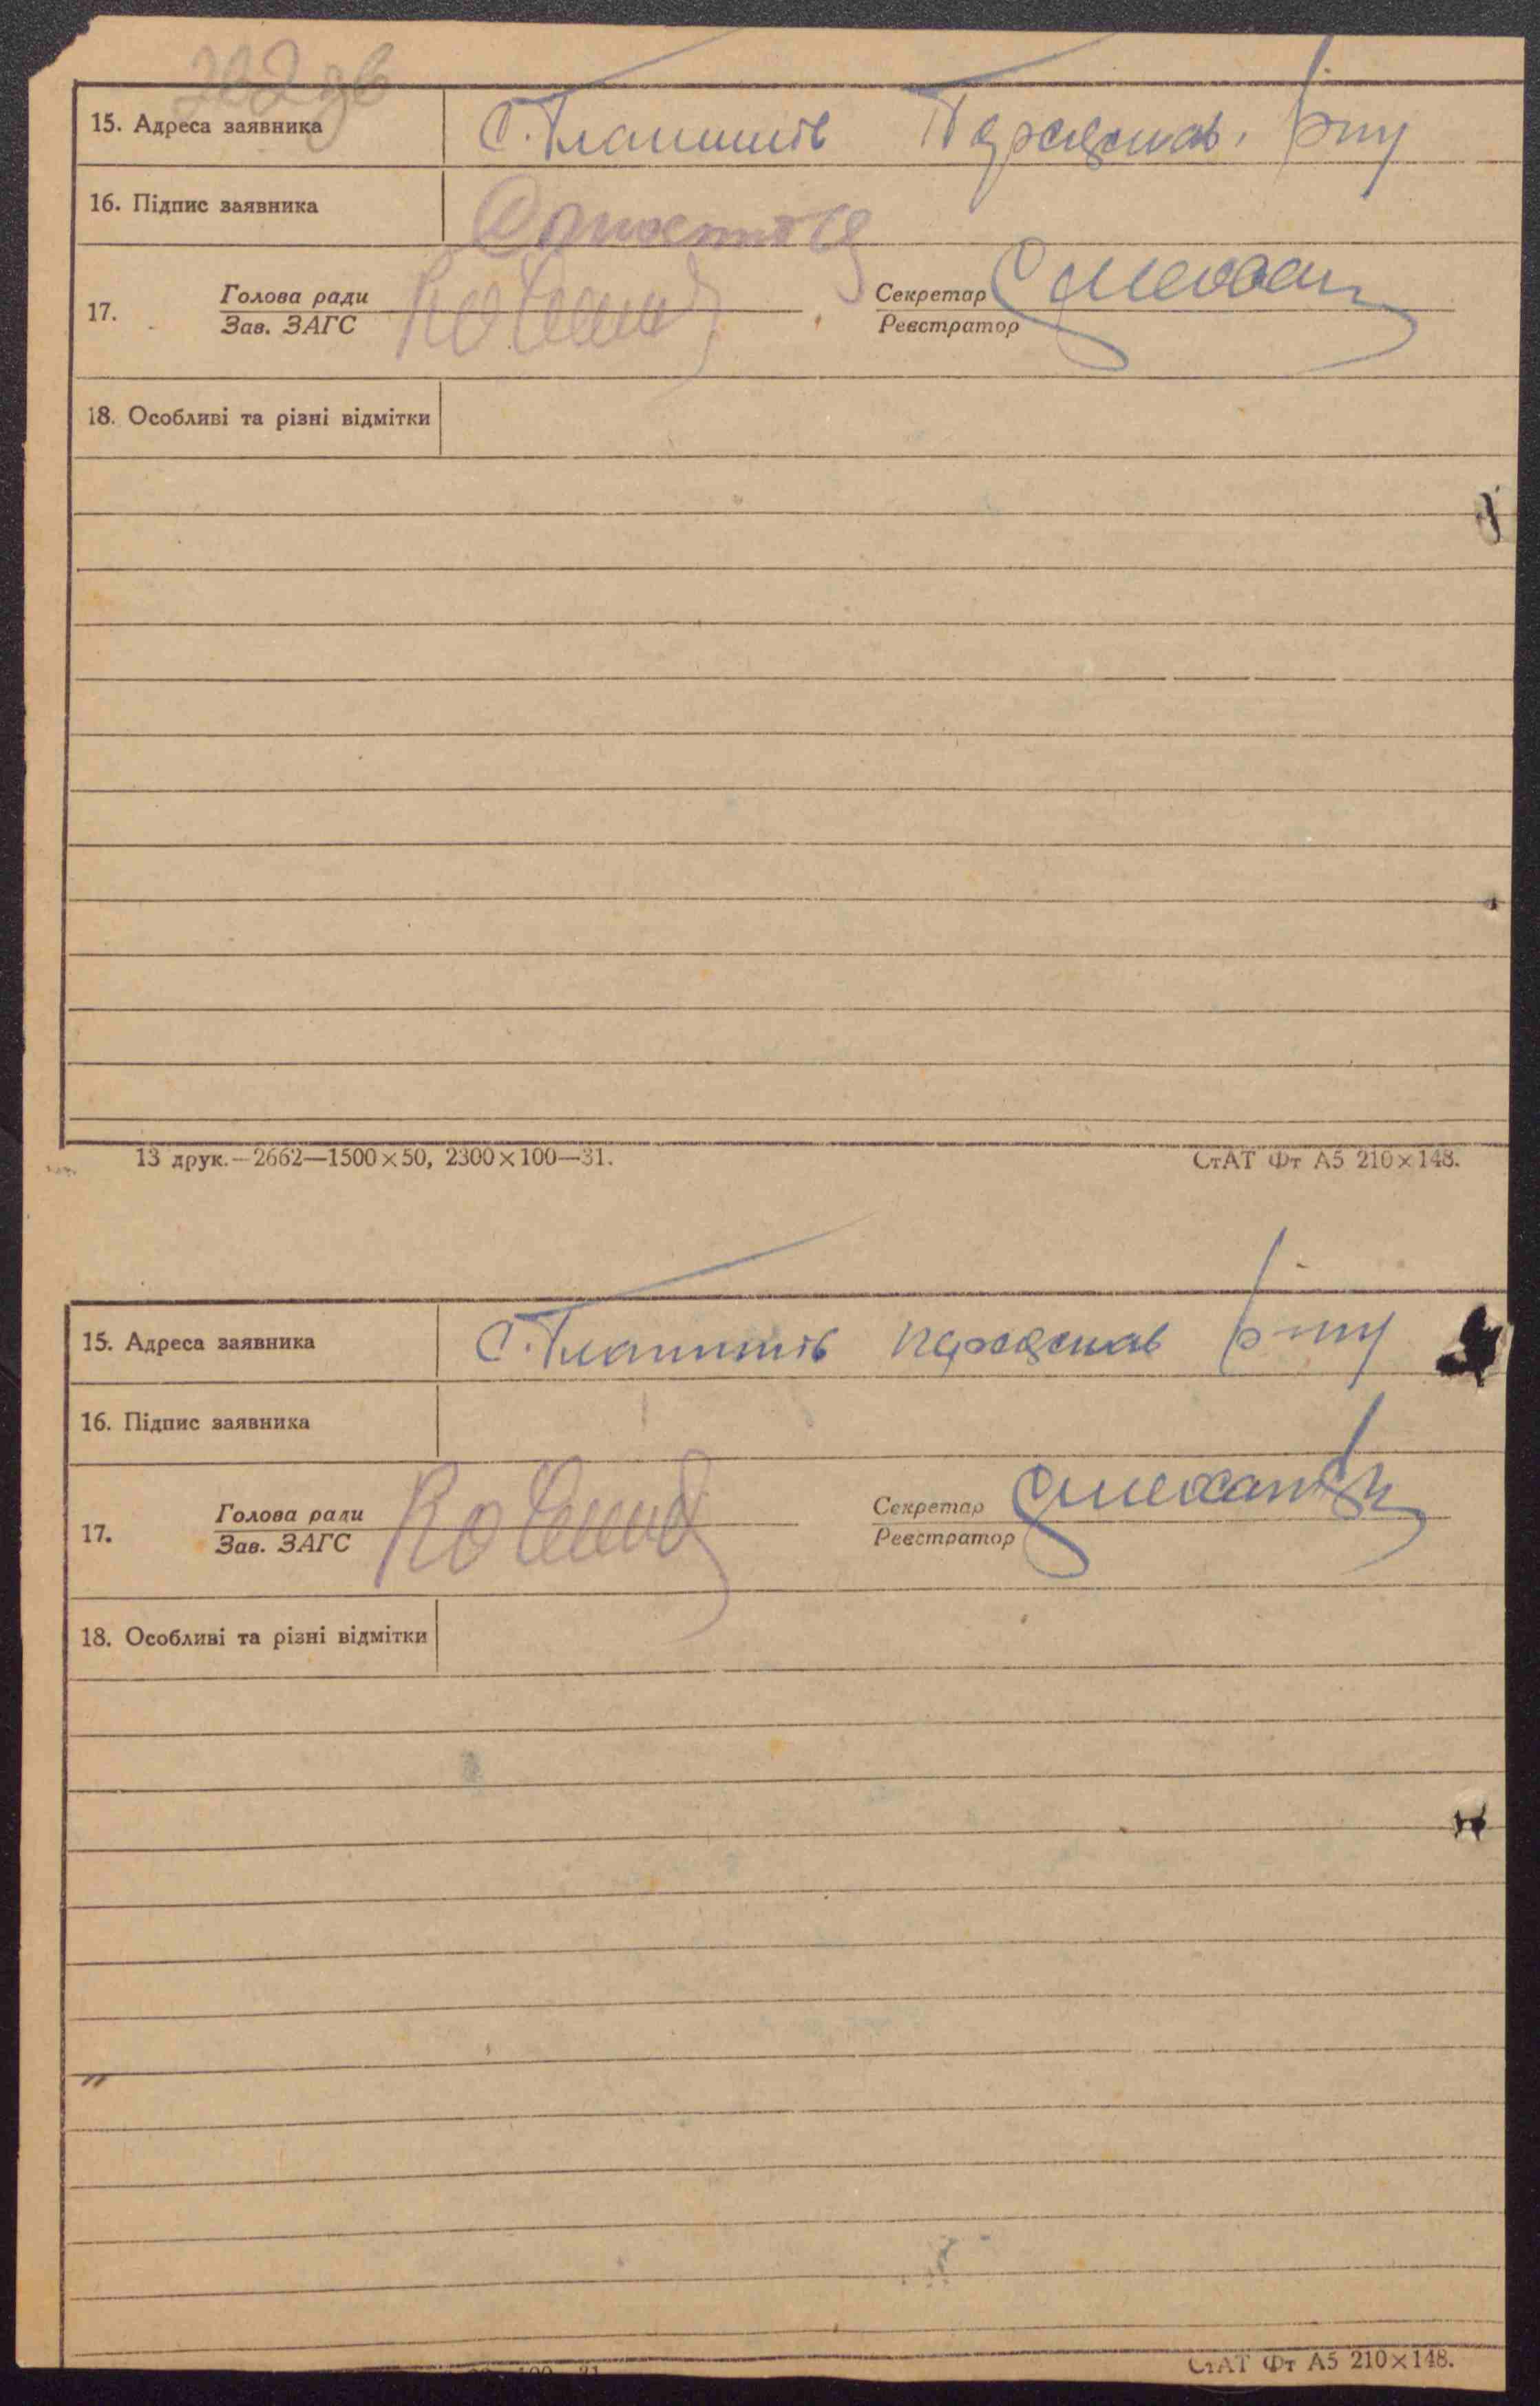 202зв
15. Адреса заявника С. Ташань Переяслав. р-ну
16. Підпис заявника
17. Голова ради Секретар
Зав. ЗАГС Реєстратор
18. Особливі та різні відмітки
13 друк.—2662—1500×50, 2300×100—31. СтАТ Фт А5 210×148.
15. Адреса заявника С. Переяслав р-ну
16. Підпис заявника
17. Голова ради Секретар
Зав. ЗАГС Реєстратор
18. Особливі та різні відмітки
СтАТ Фт А5 210×148.